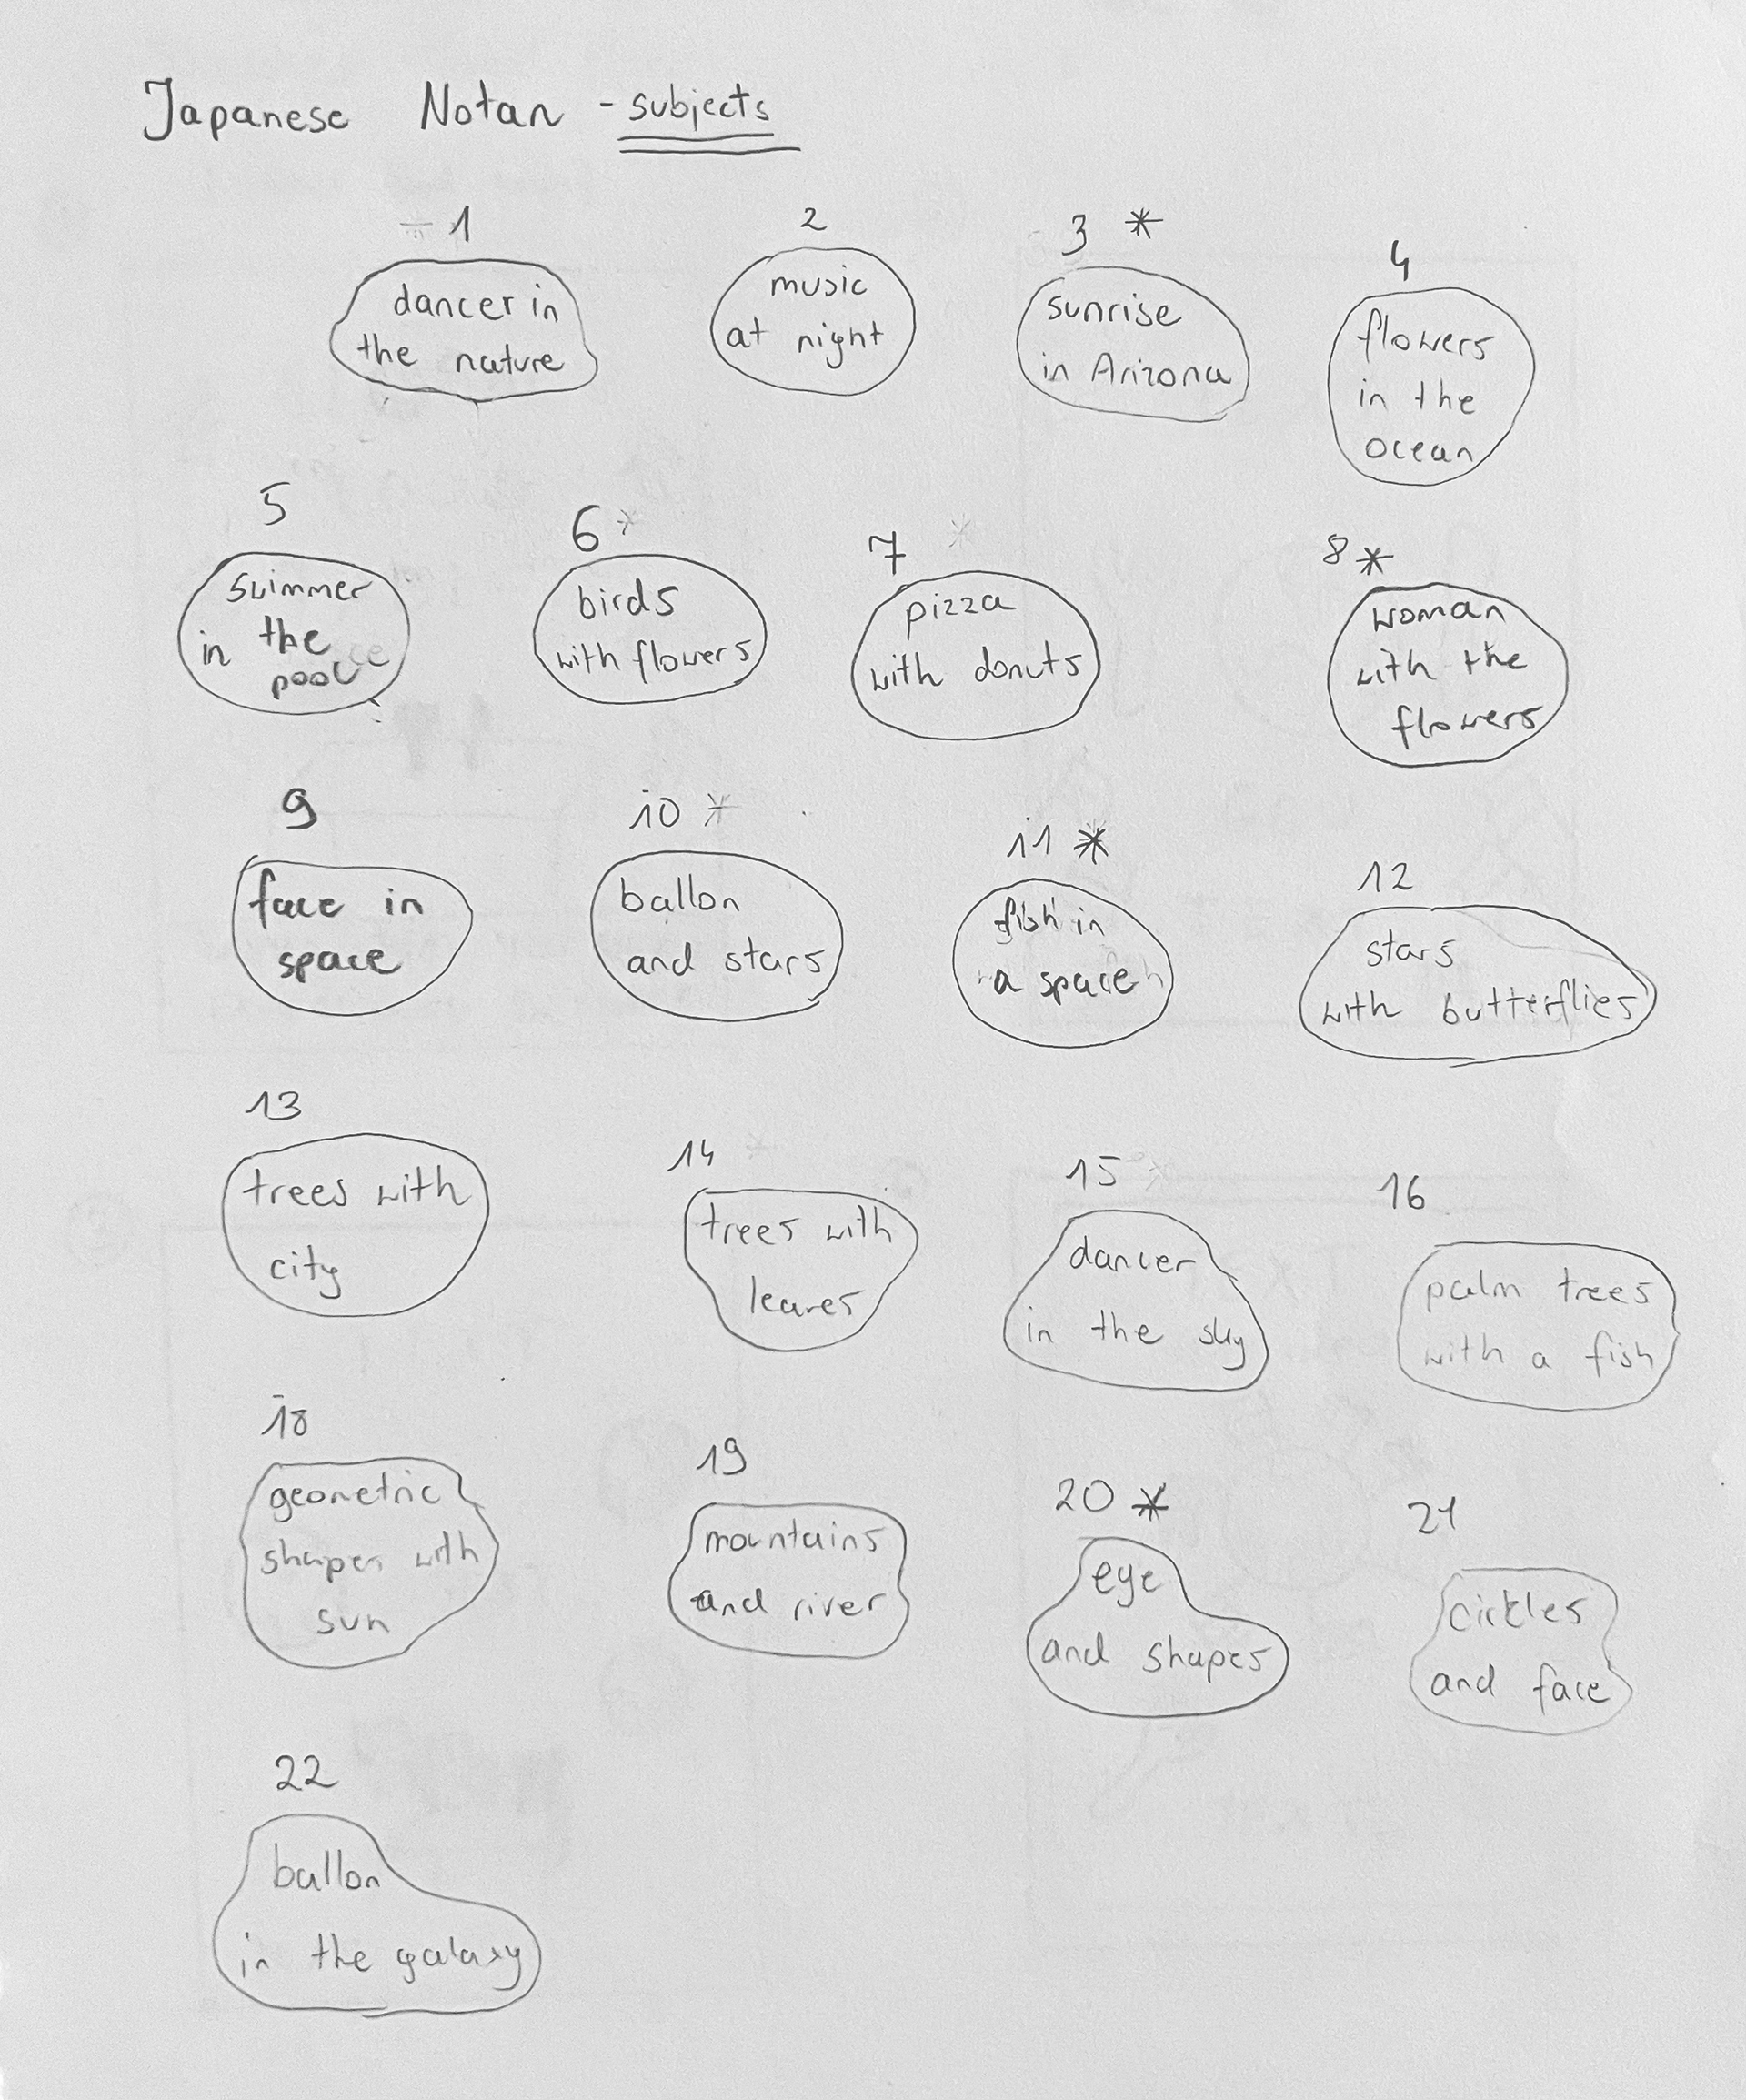 Japanese Notan - subjects
1
dancer in
the nature
2
music
at night
3 *
sunrise
in Arizona
4
flowers
in the
ocean
5
swimmer
in the
pool
6 *
birds
with flowers
7 *
pizza
with donuts
8 *
woman
with the
flowers
9
face in
space
10 *
ballon
and stars
11 *
fish in
a space
12
stars
with butterflies
13
trees with
city
14 *
trees with
leaves
15 *
dancer
in the sky
16
palm trees
with a fish
18
geometric
shapes with
sun
19
mountains
and river
20 *
eye
and shapes
21
cirkles
and face
22
ballon
in the galaxy